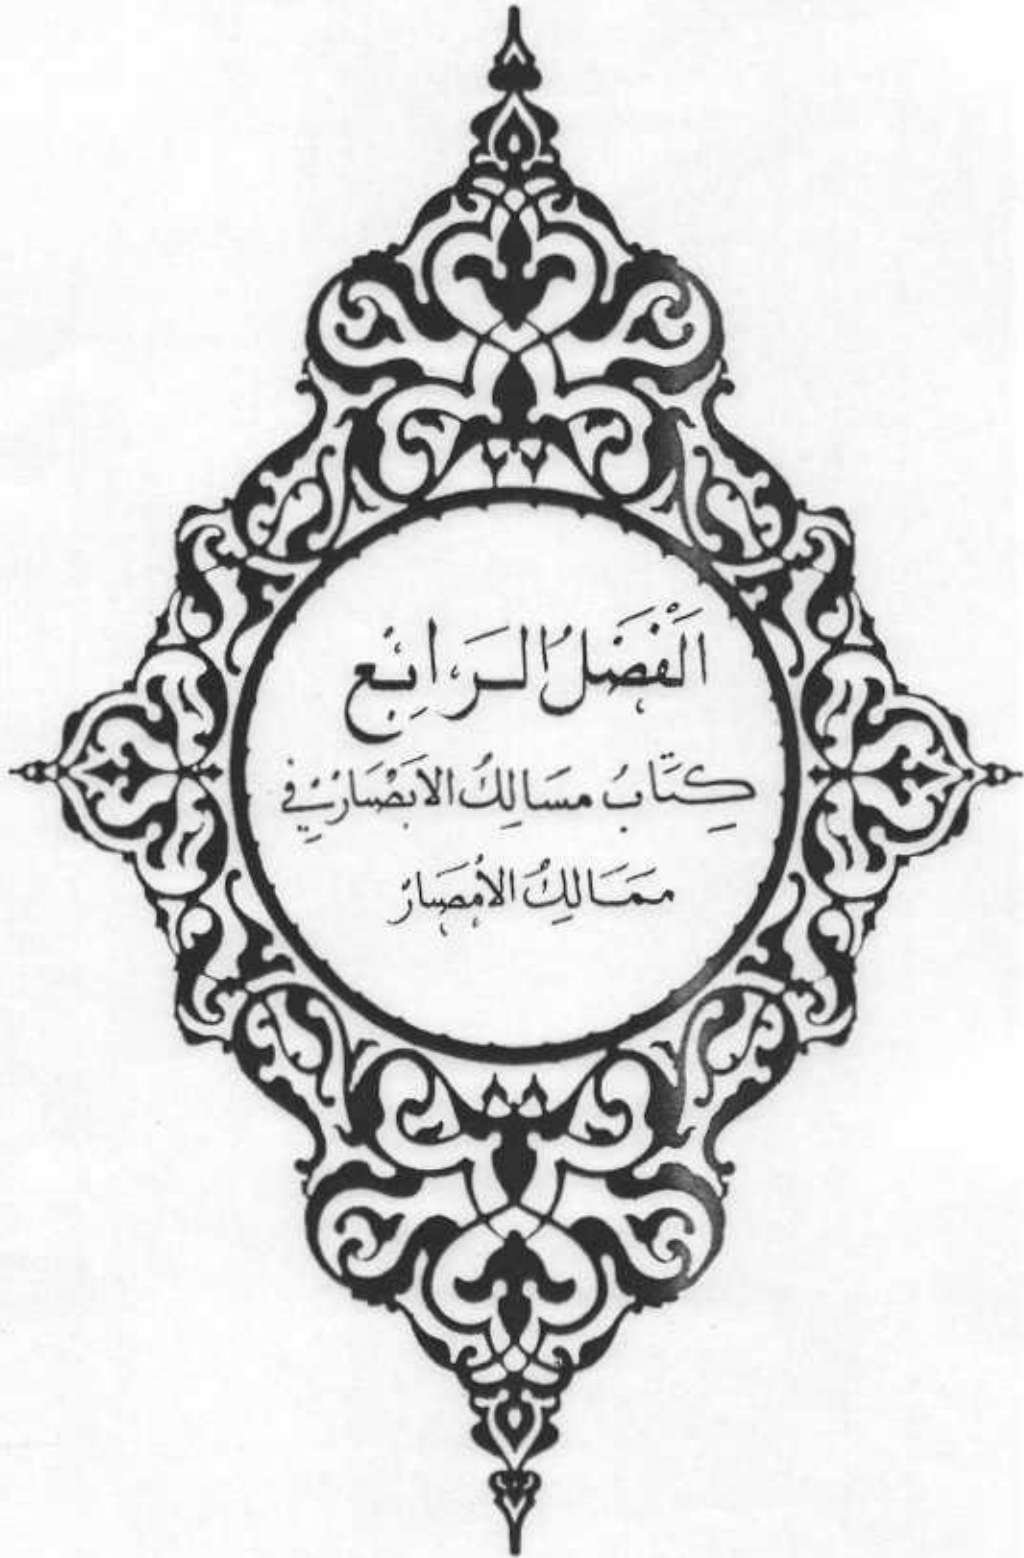 اَلْفَصْلُ الرَّابِعُ
كِتَابُ مَسَالِكُ الأَبْصَارِ فِي
مَمَالِكُ الأَمْصَارِ